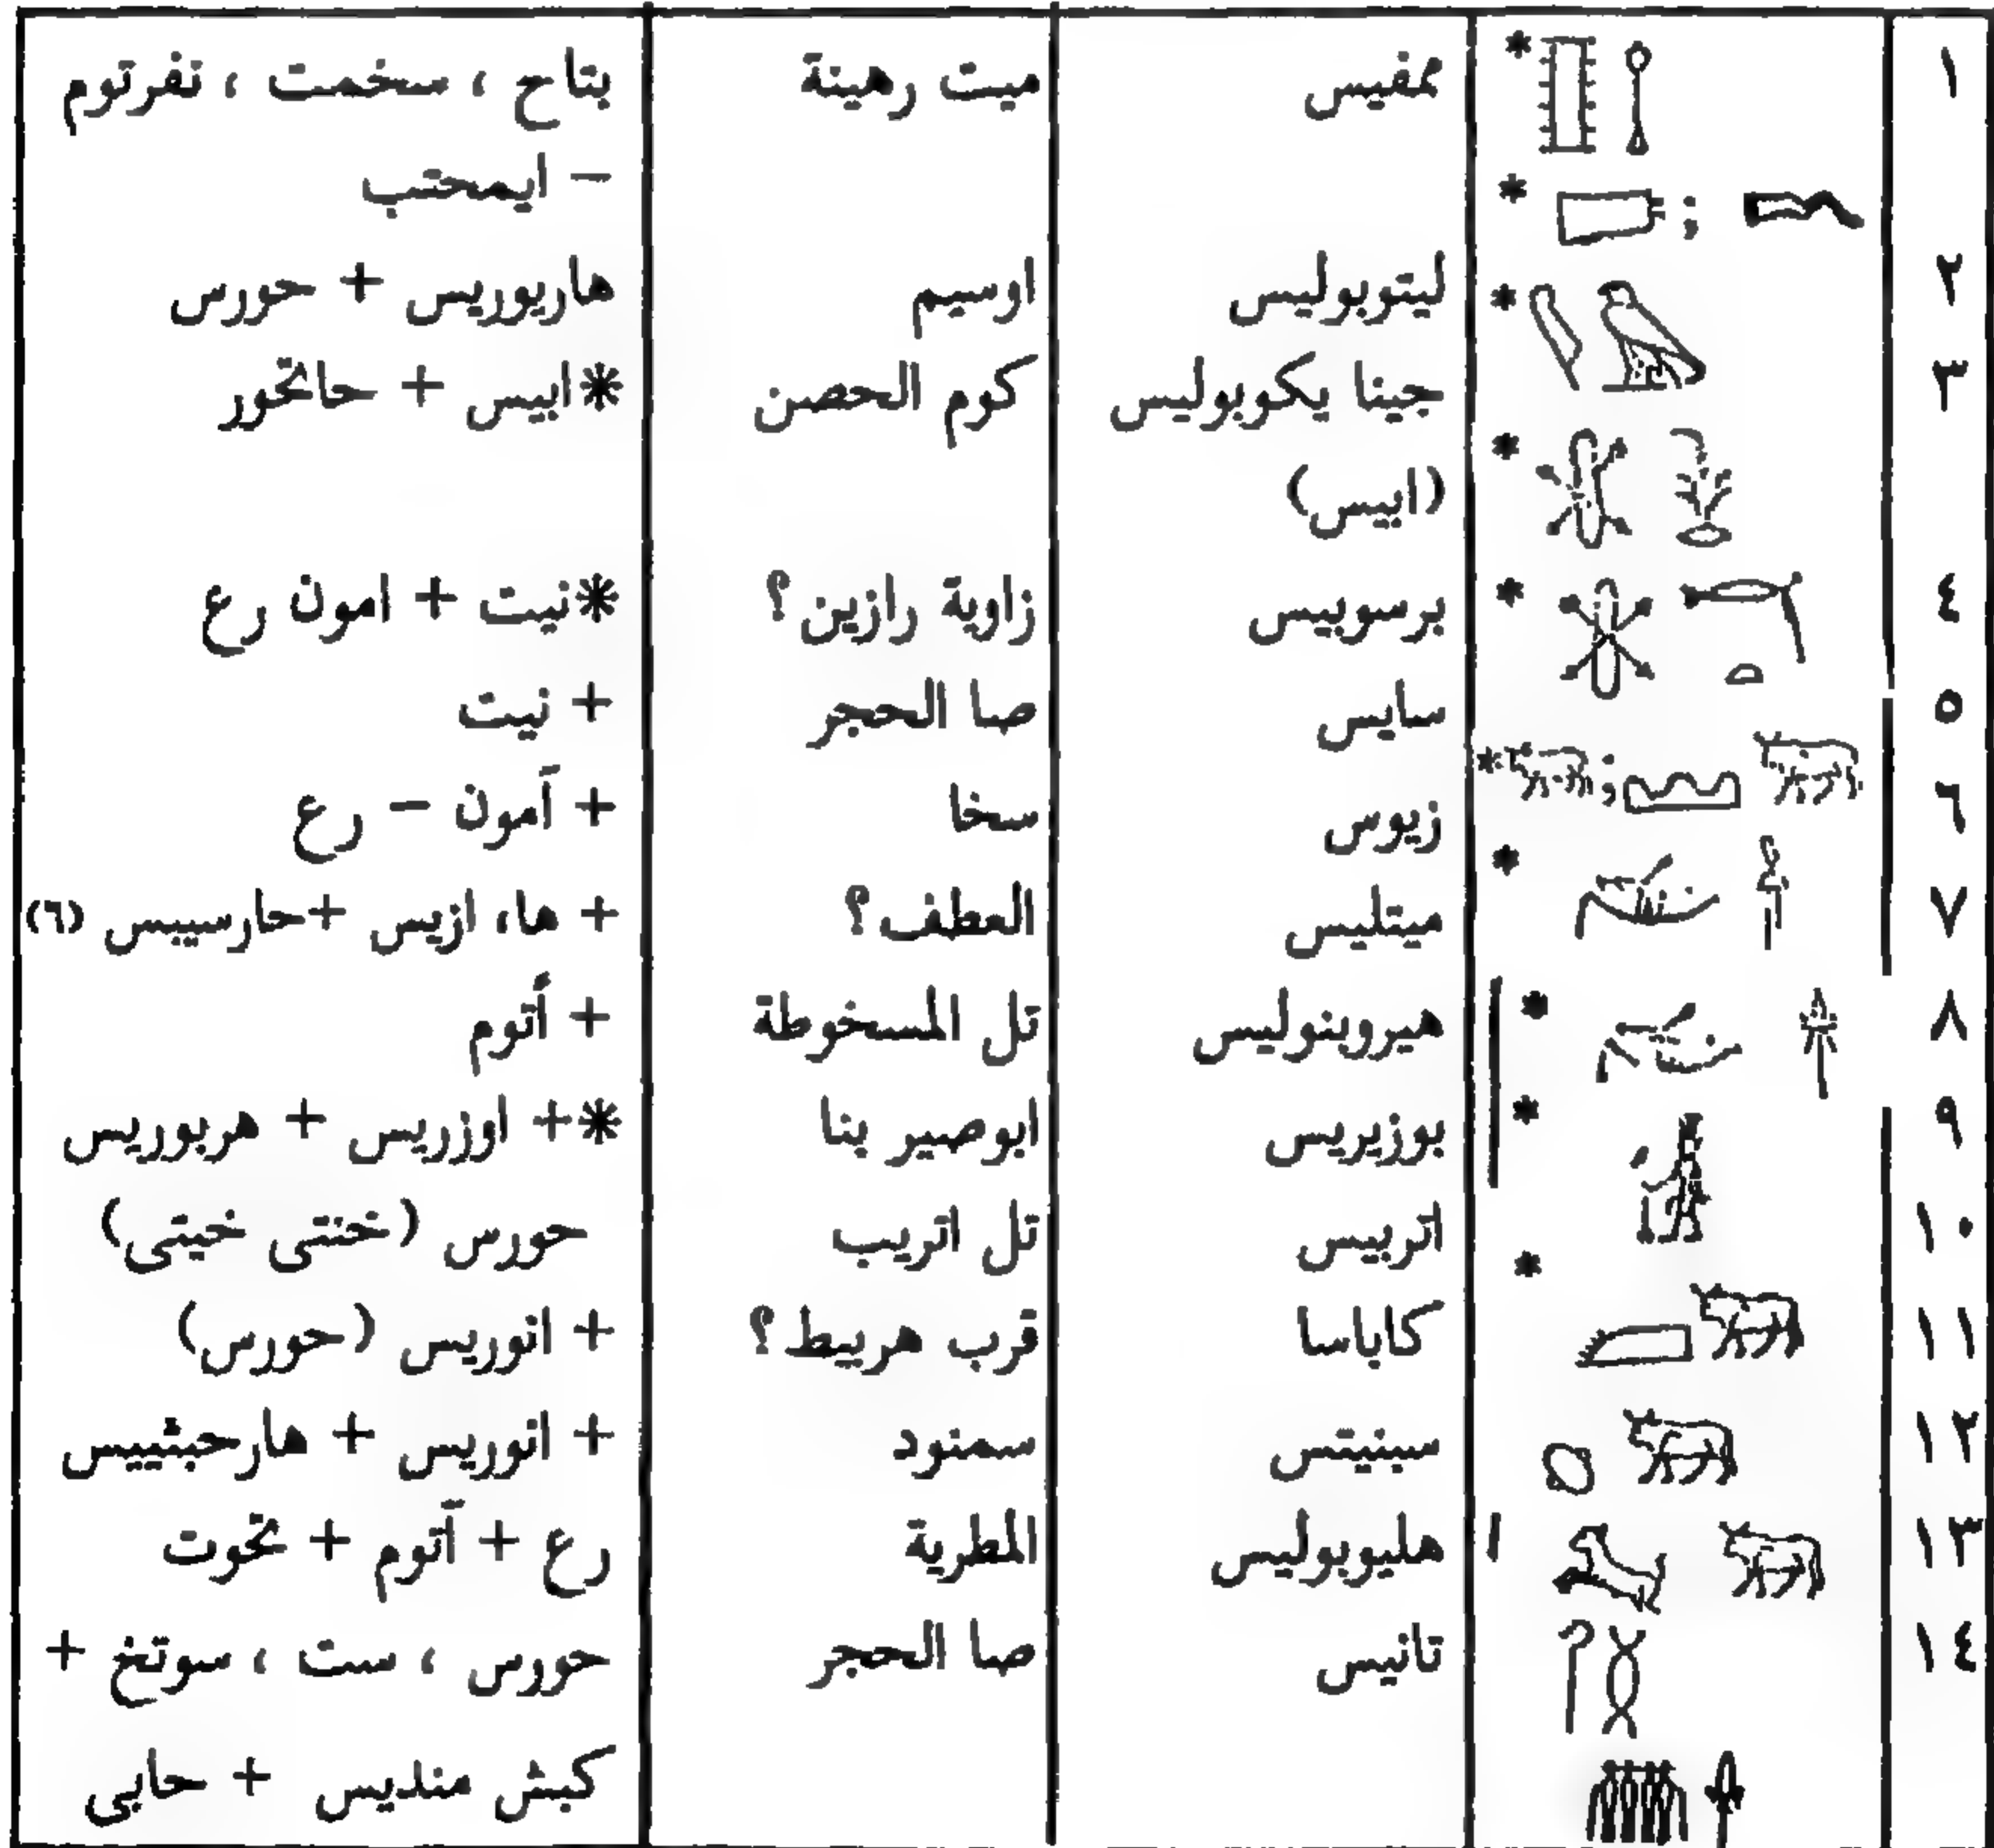 ١ * ممفيس ميت رهينة بتاح ، سخمت ، نفرتوم
* ; – ايمحتب
٢ * ليتوبوليس اوسيم هاربوريس + حورس
٣ جينا يكوبوليس كوم الحصن *ابيس + حاتحور
* (ابيس)
٤ * برسوبيس زاوية رازين؟ *نيت + امون رع
٥ سايس صا الحجر + نيت
٦ ; * زيوس سخا + آمون – رع
٧ * ميتليس العطف؟ + ها، ازيس +حارسييس (٦)
٨ * هيروبنوليس تل المسخوطة + أتوم
٩ * بوزيريس ابوصير بنا *+ اوزريس + هربوريس
١٠ * اتربيس تل اتريب حورس (خنتى خيتى)
١١ كاباسا قرب هربيط؟ + انوريس (حورس)
١٢ سبنيتس سمنود + انوريس + هارحبثييس
١٣ هليوبوليس المطرية رع + آتوم + تحوت
١٤ تانيس صا الحجر حورس ، ست ، سوتخ +
كبش منديس + حابى